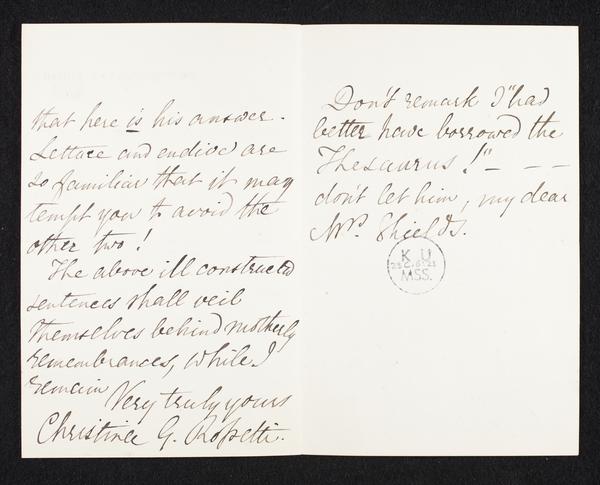 that here is his answer.
Lettuce and endive are
so familiar that it may
tempt you to avoid the
other two!
The above ill constructed
sentences shall veil
themselves behind motherly
remembrances, while I
remain
Very truly yours
Christina G. Rossetti.
Don't remark I "had
better have borrowed the
Thesaurus!" _ _ _
don't let him, my dear
Mrs. Shields.
K U
MSS.